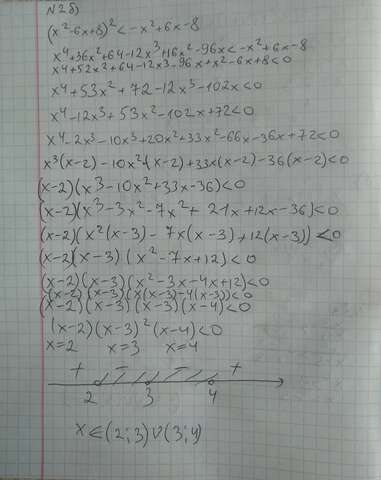 N2б)
(x²-6x+8)²<-x²+6x-8
x⁴+36x²+64-12x³+16x²-96x<-x²+6x-8
x⁴+52x²+64-12x³-96x+x²-6x+8<0
x⁴+53x²+72-12x³-102x<0
x⁴-12x³+53x²-102x+72<0
x⁴-2x³-10x³+20x²+33x²-66x-36x+72<0
x³(x-2)-10x²(x-2)+33x(x-2)-36(x-2)<0
(x-2)(x³-10x²+33x-36)<0
(x-2)(x³-3x²-7x²+21x+12x-36)<0
(x-2)(x²(x-3)-7x(x-3)+12(x-3))<0
(x-2)(x-3)(x²-7x+12)<0
(x-2)(x-3)(x²-3x-4x+12)<0
(x-2)(x-3)(x(x-3)-4(x-3))<0
(x-2)(x-3)(x-3)(x-4)<0
(x-2)(x-3)²(x-4)<0
x=2 x=3 x=4
+ - - +
2 3 4
x∈(2;3)∪(3;4)